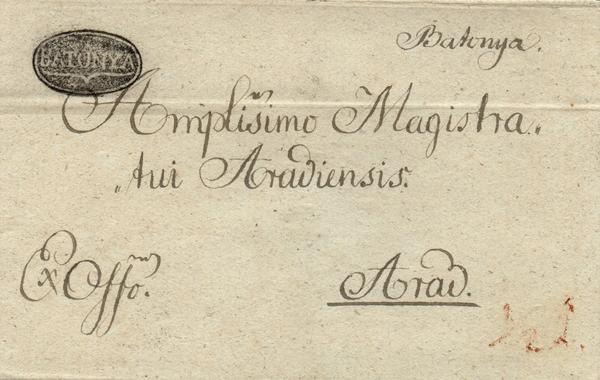 BATONYA
Batonya.
Amplissimo Magistra„
„tui Aradiensis.
Ex Offo.
Arad.